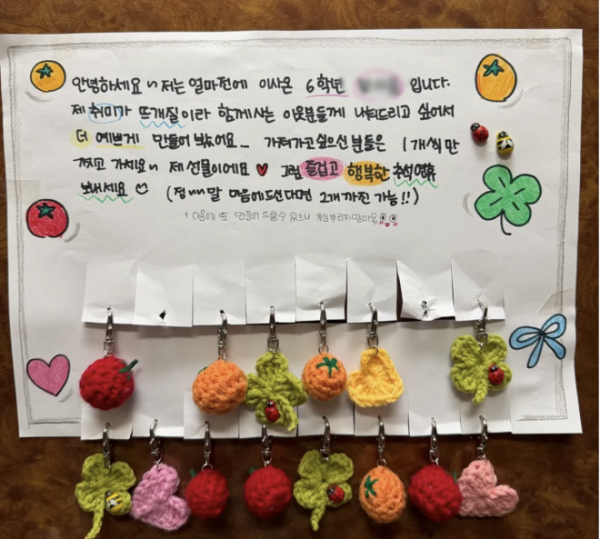 안녕하세요~ 저는 얼마전에 이사온 6학년 입니다.
제 취미가 뜨개질이라 함께사는 이웃분들께 나눠드리고 싶어서
더 예쁘게 만들어 봤어요... 가져가고싶으신 분들은 1개씩만
찢고 가세요~ 제 선물이에요 ♥ 그럼 즐겁고 행복한 추석연휴
보내세요 (정~~말 마음에드신다면 2개까진 가능!!)
+ 다음에 또 만들어 드릴수 있으니